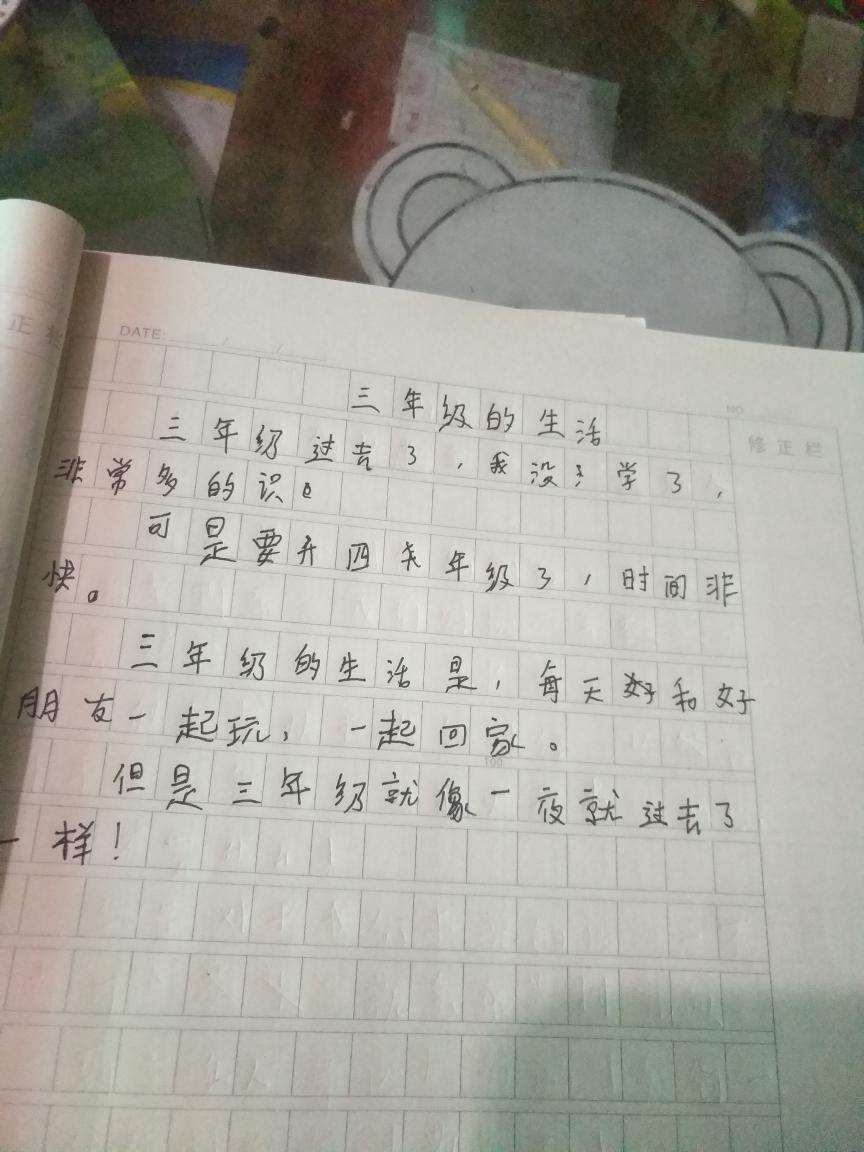 正栏
DATE:
NO
修正栏
三年级的生活
三年级过去了，我没学了，
非常多的识。
可是要开四年级了，时间非
快。
三年级的生活是，每天好和好
朋友一起玩，一起回家。
100
但是三年级就像一夜就过去了
一样！